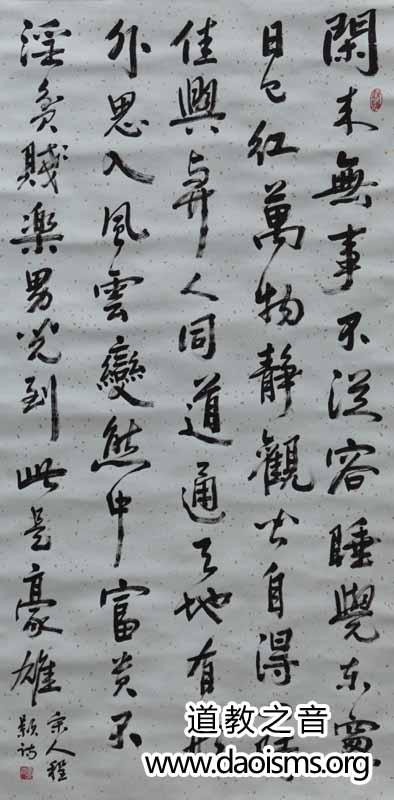 閑来無事不從容睡覺東窗
日已紅萬物靜觀皆自得
佳興與人同道通天地有形
外思入風雲變態中富貴不
淫貧賤楽男児到此是豪雄
宋人程
顥詩
道教之音
www.daoisms.org